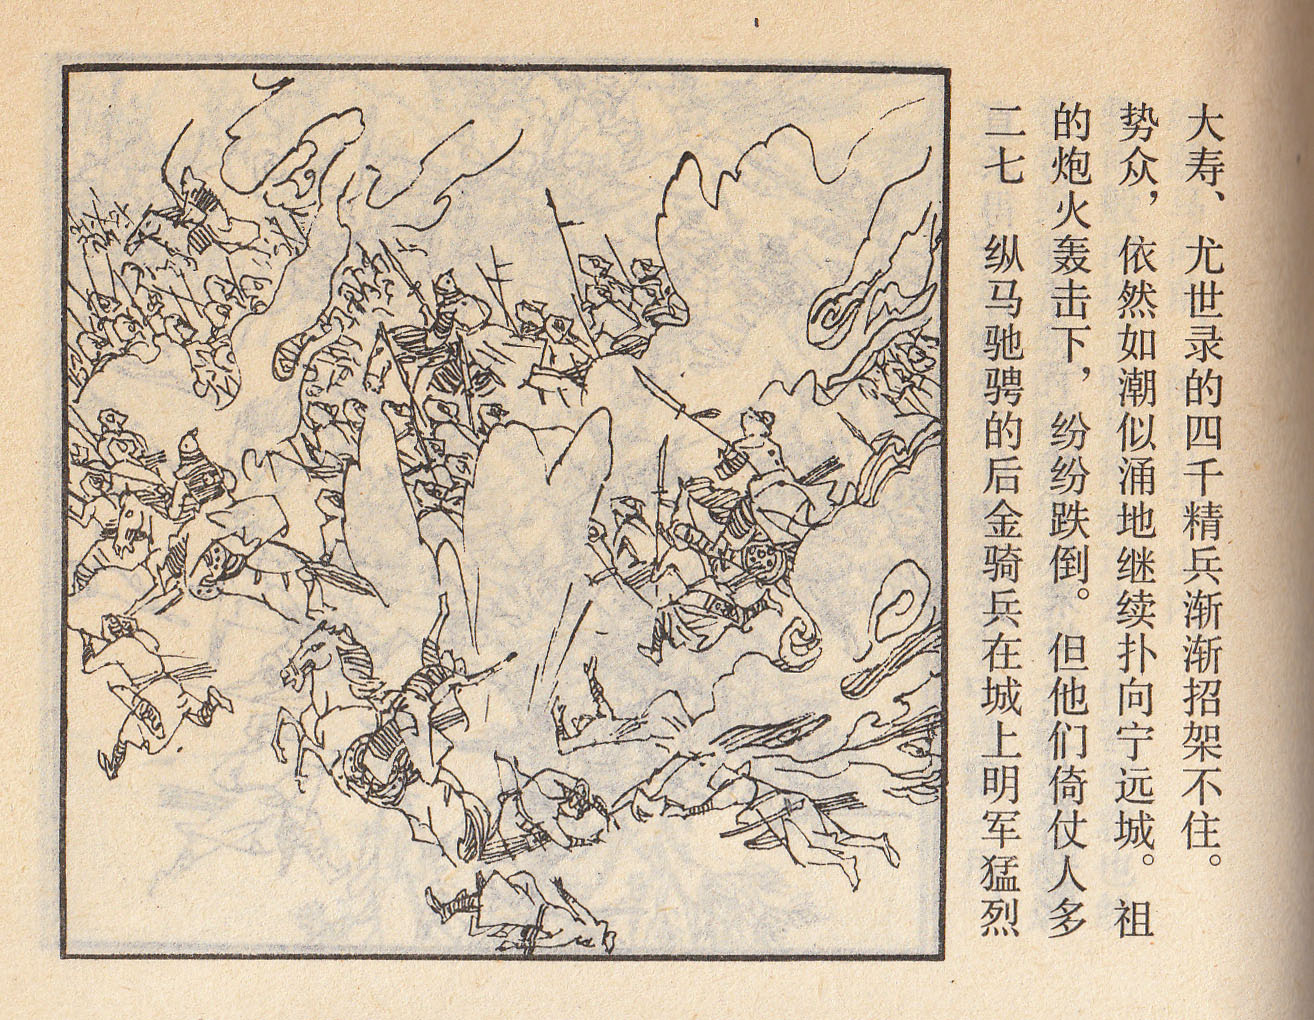 二七 纵马驰骋的后金骑兵在城上明军猛烈
的炮火轰击下，纷纷跌倒。但他们倚仗人多
势众，依然如潮似涌地继续扑向宁远城。祖
大寿、尤世录的四千精兵渐渐招架不住。